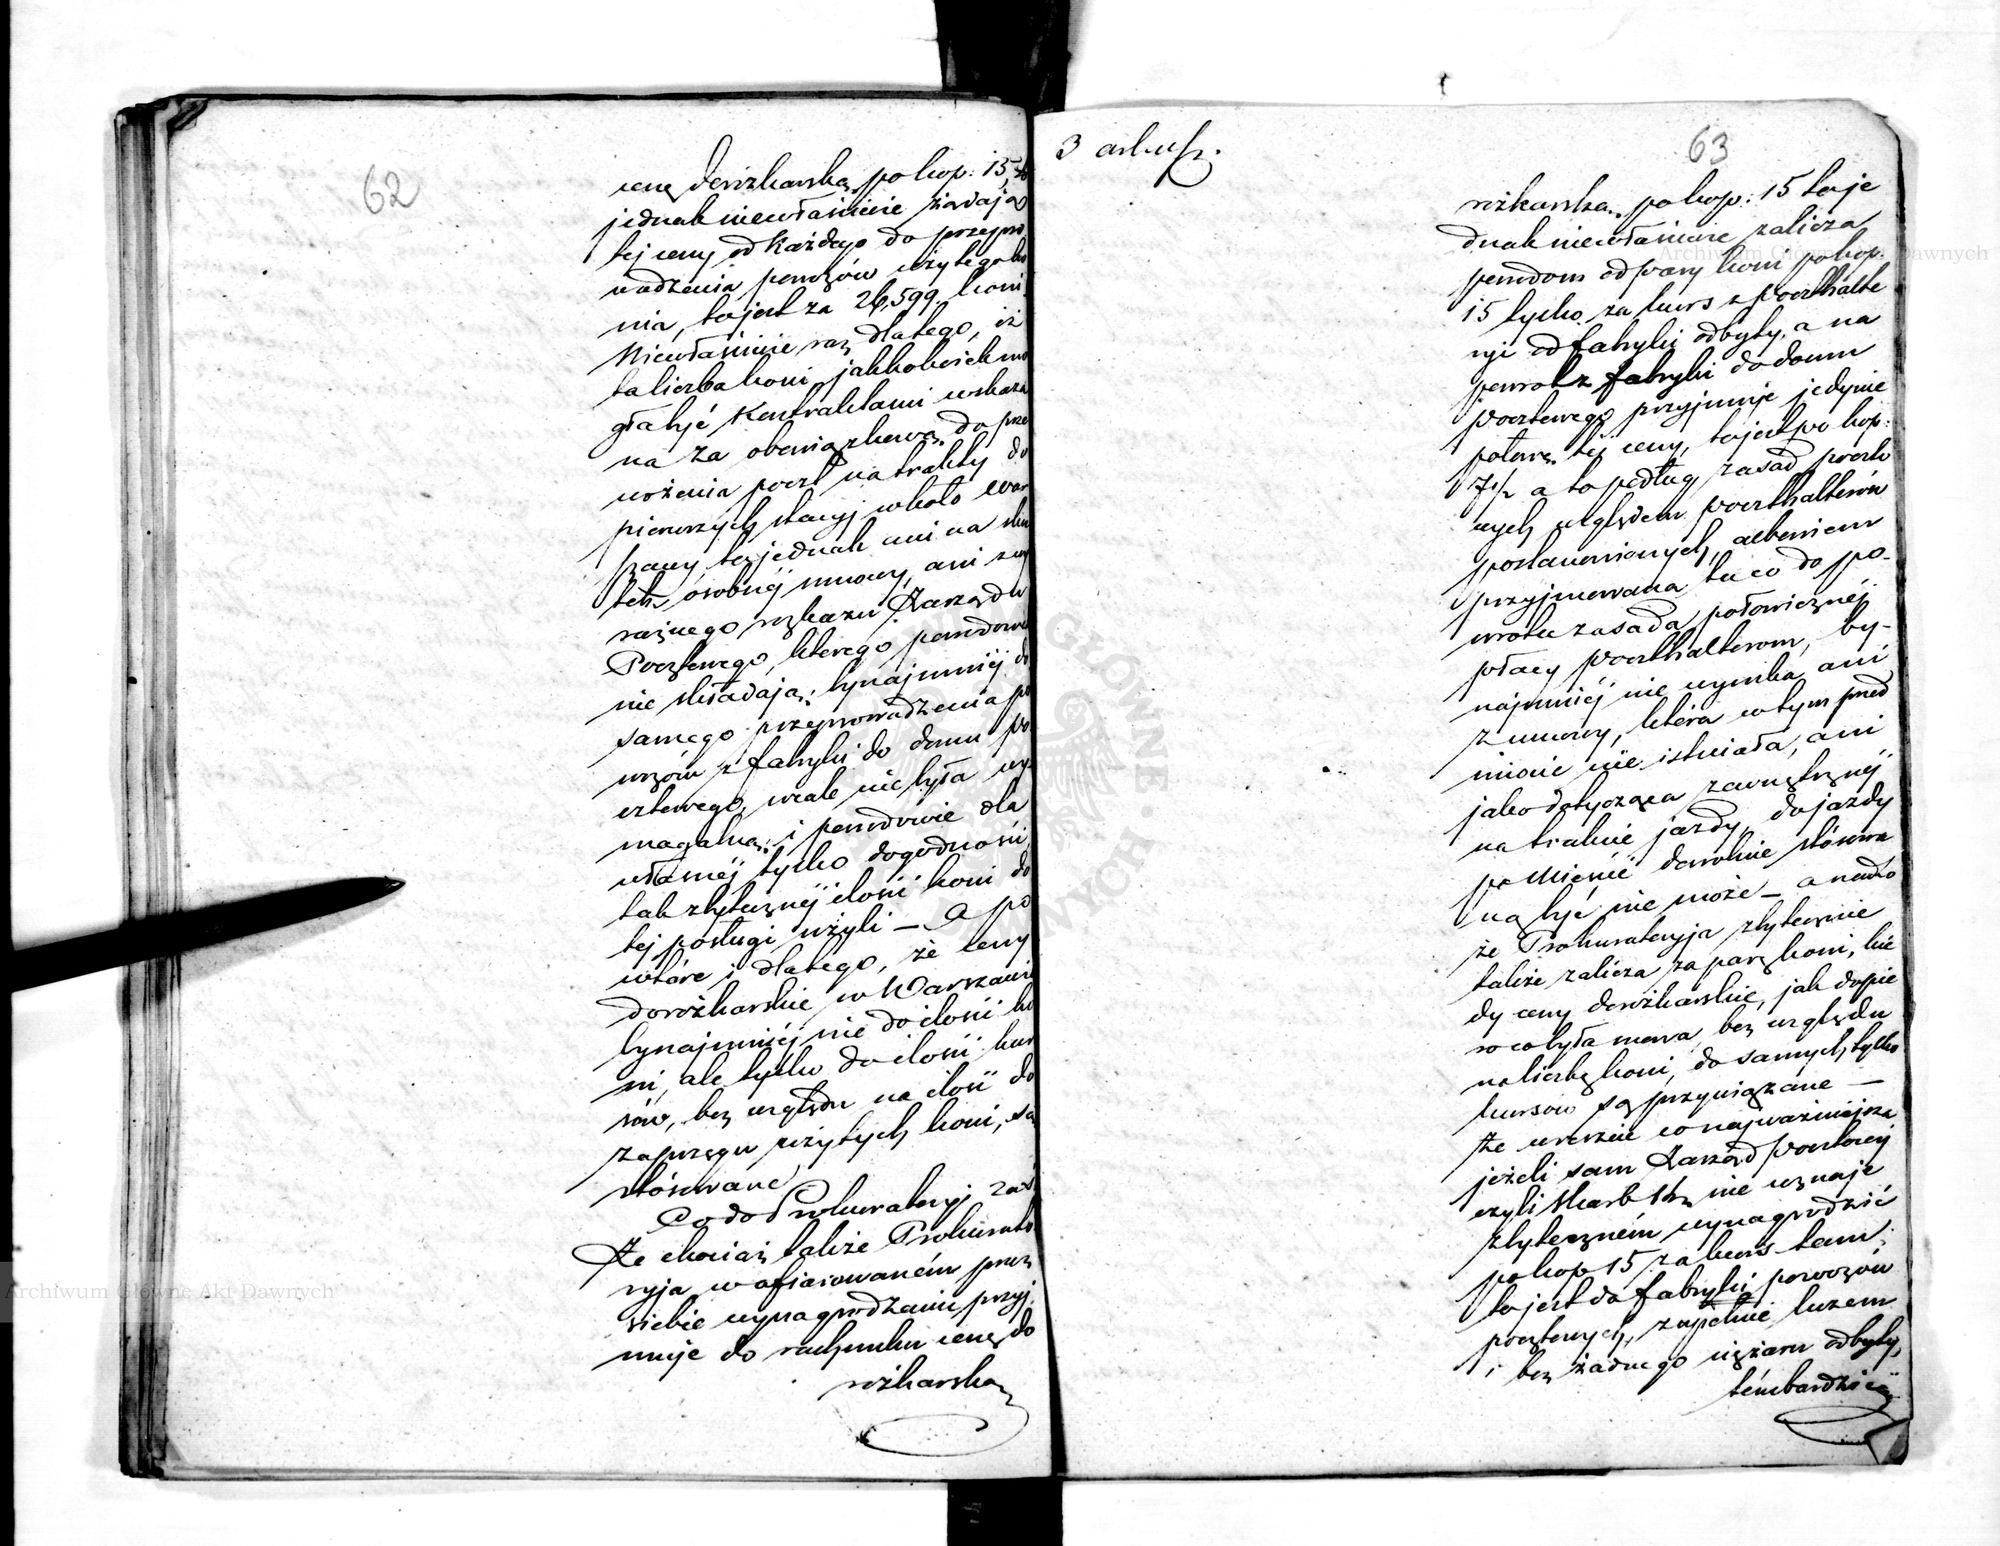 62
cenę dorożkarską po kop: 15, to
jednak niewłaściwie żądają
tej ceny od każdego do przepro
wadzenia powozów użytego ko
nia, to jest za 26,599 koni
Niewłaściwie raz dlatego, iż
ta liczba koni jakkolwiek mo
gła być Kontraktami wskaza
na za obowiązkową do prze
wożenia poczt na trakty do
pierwszych stacyj wkoło War
szawy to jednak ani na sku
tek osobnéj umowy, ani wy
raźnego rozkazu Zarządu
Pocztowego, którego powodowie
nie składają; bynajmniéj do
samego przeprowadzenia po
wozów z fabryki do domu po
cztowego, wcale nie była wy
magalną; i powodowie dla
własnéj tylko dogodności
tak zbytecznéj ilości koni do
tej posługi użyli — A po
wtóre i dlatego, że ceny
dorożkarskie w Warszawie
bynajmniéj nie do ilości ko
ni, ale tylko do ilości kur
sów, bez względu na ilość do
zaprzęgu użytych koni, są
stósowane
Co do Prokuratoryi zaś
Że chociaż także Prokurato
ryja w ofiarowaném przez
siebie wynagrodzeniu przyj
muje do rachunku cenę do
rożkarską
3 arkusz.
63
rożkarską po kop: 15 to je
dnak niewłaściwie zalicza
powodom od pary koni po kop
15 tylko za kurs z poczthalte
ryi od fabryki odbyty, a na
powrot z fabryki do domu
pocztowego przyjmuje jedynie
połowę téj ceny, to jest po kop:
7½ a to podług zasad poczto
wych względem poczthalterów
postanowionych, albowiem
przyjmowana tu co do po-
wrotu zasada połowicznéj
płacy poczthalterom, by-
najmniéj nie wynika ani
z umowy, która w tym przed
miocie nie istniała, ani
jako dotycząca zewnętrznéj
na trakcie jazdy, do jazdy
po Mieście dowolnie stósowa
ną być nie może — a nadto
że Prokuratoryja zbytecznie
także zalicza za parę koni, kie
dy ceny dorożkarskie, jak dopie
ro co była mowa, bez względu
na liczbę koni, do samych tylko
kursów są przywiązane —
Że wreszcie co najważniejsza
jeżeli sam Zarząd Pocztowy
czyli Skarb nie uznaje
zbyteczném wynagrodzić
po kop 15 za kurs tam,
to jest do fabryki powozów
pocztowych, zupełnie luzem
i bez żadnego ciężaru odbyty,
témbardziéj
Archiwum Główne Akt Dawnych
Archiwum Główne Akt Dawnych